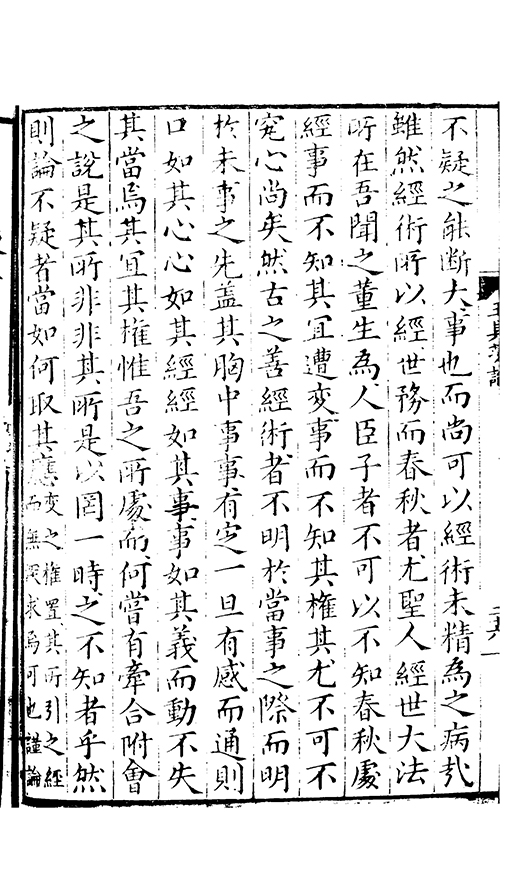 不疑之能断大事也而尚可以經術未精為之病㢤
雖然經術所以經世務而春秋者尤聖人經世大法
所在吾聞之董生為人臣子者不可以不知春秋處
經事而不知其宜遭变事而不知其權其尤不可不
究心尚矣然古之善經術者不明於當事之際而明
於未事之先盖其胸中事事有定一旦有感而通則
口如其心心如其經經如其事事如其義而動不失
其當焉其宜其權惟吾之所處而何嘗有牽合附會
之說是其所非非其所是以罔一時之不知者乎然
則論不疑者當如何取其應变之權置其所引之經
而無深求焉可也謹論